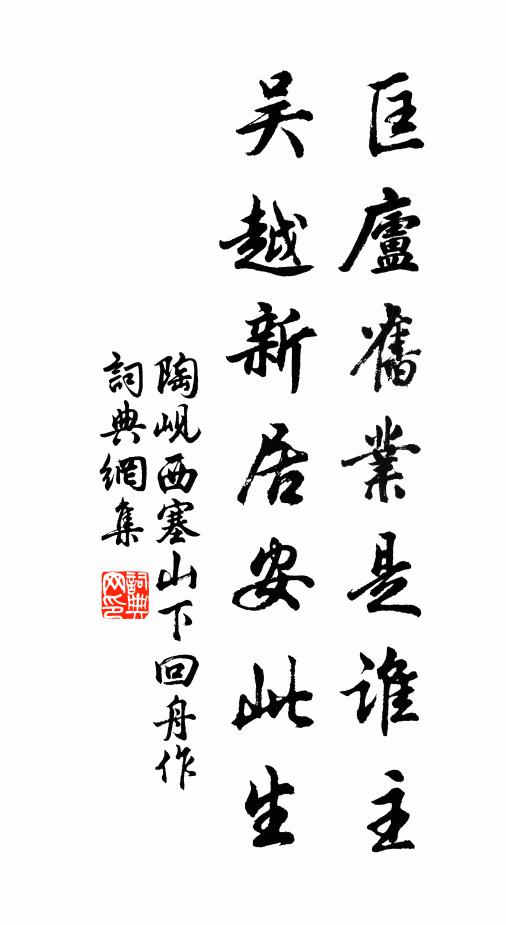 匡廬舊業是誰主
吴越新居安此生
陶峴西塞山下回舟作
詞典網集
詞典
网印